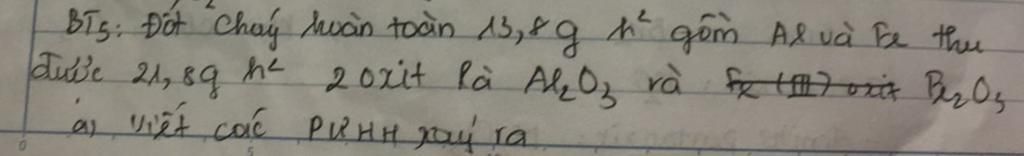 BT5: Đốt cháy hoàn toàn 13,8g h² gồm Al và Fe thu
được 21,8g h² 2 oxit là Al₂O₃ và Fe (III) oxit Fe₂O₃
a) Viết các PƯHH xảy ra